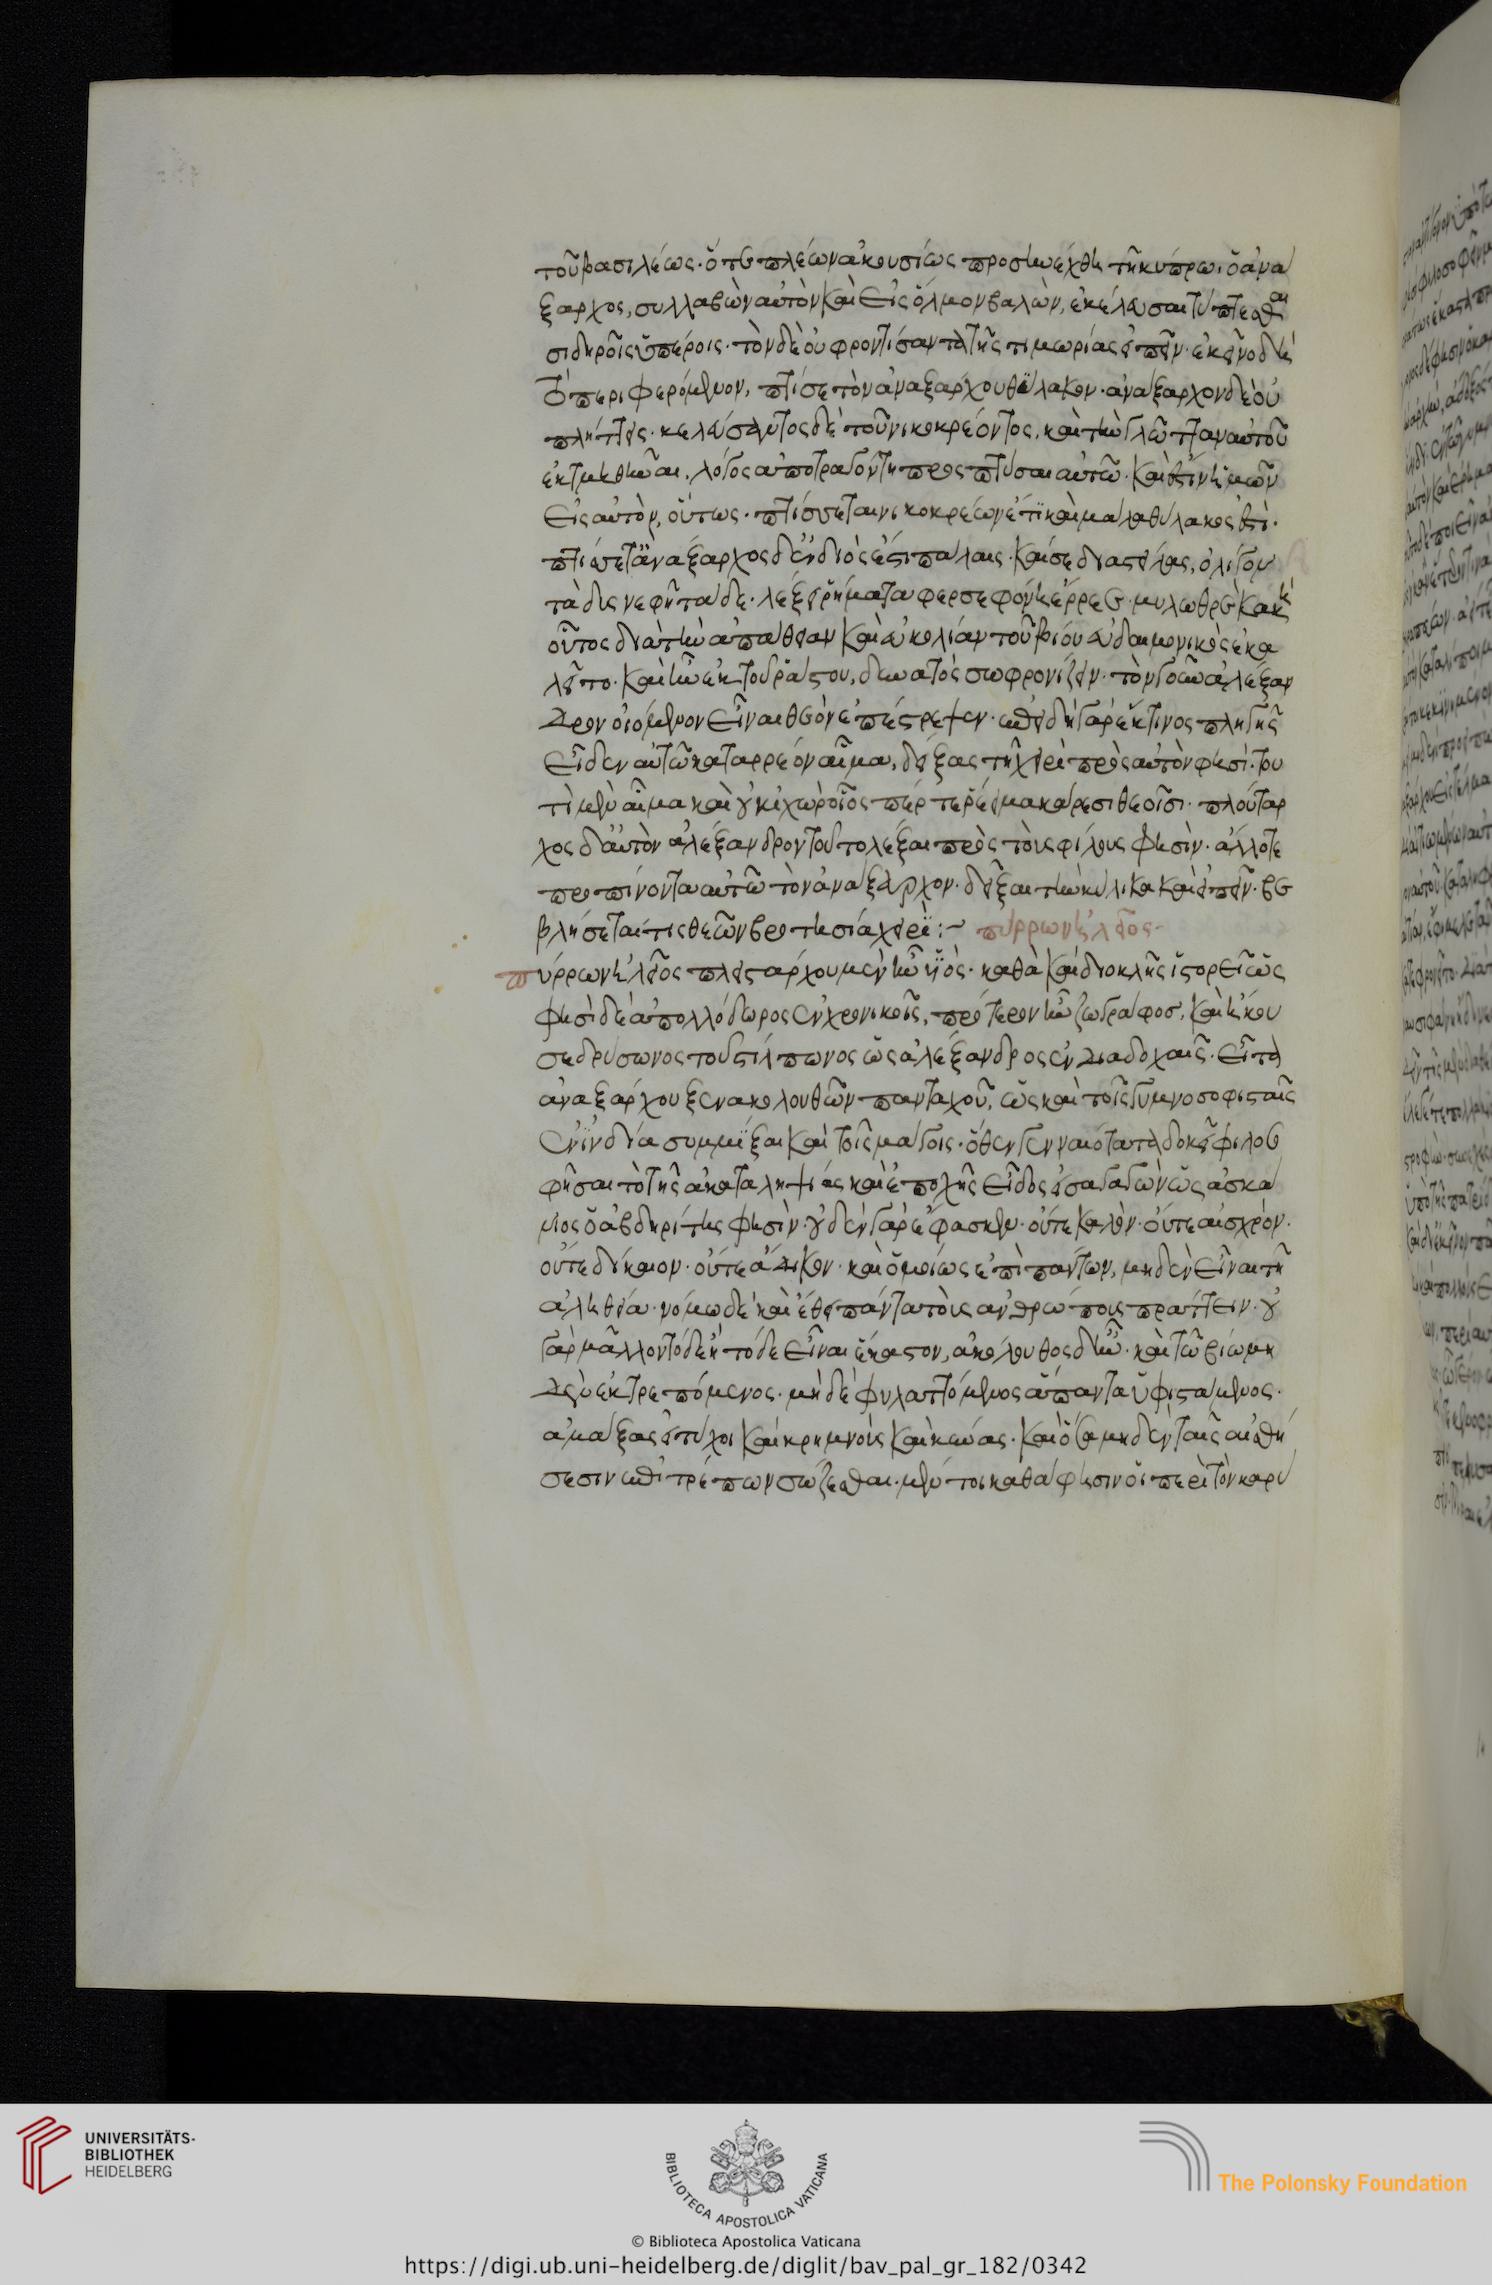 τοῦ βασιλέως. ὅτε πλέων ἀκουσίως προσηνέχθη τῆ κύπρω. ὁ ἀνά
ξαρχος, συλλαβὼν αὐτὸν καὶ εἰς ὅλμον βαλὼν, ἐκέλευσαι τύπτεσθαι
σιδηροῖς ὑπέροις. τὸν δὲ οὐ φροντίσαντα τῆς τιμωρίας εἰπεῖν. ἐκεῖνο δὴ
τὸ περιφερόμενον, πτίσσε τὸν ἀναξάρχου θύλακον. ἀνάξαρχον δὲ οὐ
πλήττεις. κελεύσαντος δὲ τοῦ νικοκρέοντος, καὶ τὴν γλῶτταν αὐτοῦ
ἐκτμηθῆναι, λόγος ἀποτραγόντη προσπτύσαι αὐτῶ. καὶ ἔστιν ἡμῶν
εἰς αὐτὸν, οὕτως. πτίσσεται νικοκρέων ἔτι καὶ μάλα θύλακος ἐστὶ.
πτίσσετ' ἀνάξαρχος δ' ἐν διός ἐστι πάλαις. καί σε διαστείλας, ὀλίγον
τὰ δις νεφῆ τάδε. λέξει ῥήματα φερσεφόνη ἔρρε μυλωθρὲ κακέ
οὗτος διὰ τὴν ἀπάθειαν καὶ εὐκολίαν τοῦ βίου εὐδαιμονικὸς ἐκα
λεῖτο. καὶ ἦν ἐκ τοῦ ῥάστου, δυνατὸς σωφρονίζειν. τὸν γοῦν ἀλέξαν
δρον οἰόμενον εἶναι θεὸν ἐπέστρεψεν. ἐπειδὴ γὰρ ἔκ τινος πληγῆς
εἶδεν αὐτῶ καταρρέον αἷμα, δείξας τῆ χειρὶ πρὸς αὐτὸν φησί. του
τὶ μὲν αἷμα καὶ οὐκ ἰχὼρ οἷός πέρ τε ῥέει μακάρεσι θεοῖσι. πλούταρ
χος δ' αὐτὸν ἀλέξανδρον τοῦτο λέξαι πρὸς τοὺς φίλους φησὶν. ἄλλοτε
προπίνοντα αὐτῶ τὸν ἀνάξαρχον. δεῖξαι τὴν κύλικα καὶ εἰπεῖν. βε
βλήσεταί τις θεῶν βροτησία χερί :~ πύρρων ἠλεῖος
πύρρων ἠλεῖος πλειστάρχου μὲν ἦν υἱὸς. καθὰ καὶ διοκλῆς ἱστορεῖ ὡς
φησὶ δὲ ἀπολλόδωρος ἐν χρονικοῖς, πρότερον ἦν ζωγράφος, καὶ ἤκου
σε δρύσωνος τοῦ στίλπωνος ὡς ἀλέξανδρος ἐν διαδοχαῖς. εἶτα
ἀναξάρχου ξεν ἀκολουθῶν πανταχοῦ, ὡς καὶ τοῖς γυμνοσοφισταῖς
ἐν ἰνδία συμμῖξαι καὶ τοῖς μάγοις. ὅθεν γενναιότατα δοκεῖ φιλοσο
φῆσαι τὸ τῆς ἀκαταληψίας καὶ ἐποχῆς εἶδος εἰσαγαγὼν ὡς ἀσκά
νιος ὁ ἀβδηρίτης φησὶν. οὐδὲν γὰρ ἔφασκεν. οὔτε καλὸν. οὔτε αἰσχρὸν.
οὔτε δίκαιον. οὔτε ἄδικον. καὶ ὁμοίως ἐπὶ πάντων, μηδὲν εἶναι τῆ
ἀληθεία. νόμω δὲ καὶ ἔθει πάντα τοὺς ἀνθρώπους πράττειν. οὐ
γὰρ μᾶλλον τόδε ἢ τόδε εἶναι ἕκαστον, ἀκόλουθος δ' ἦν. καὶ τῶ βίω μη
δὲν ἐκτρεπόμενος. μηδὲ φυλαττόμενος ἅπαντα ὑφιστάμενος.
ἁμάξας εἰ τύχοι καὶ κρημνοὺς καὶ κύνας. καὶ ὅσα μηδὲν ταῖς αἰσθή
σεσιν ἐπιτρέπων σώζεσθαι. μέν τοι καθά φησιν οἱ περὶ τὸν καρύ
UNIVERSITÄTS-
BIBLIOTHEK
HEIDELBERG
BIBLIOTECA APOSTOLICA VATICANA
The Polonsky Foundation
© Biblioteca Apostolica Vaticana
https://digi.ub.uni-heidelberg.de/diglit/bav_pal_gr_182/0342